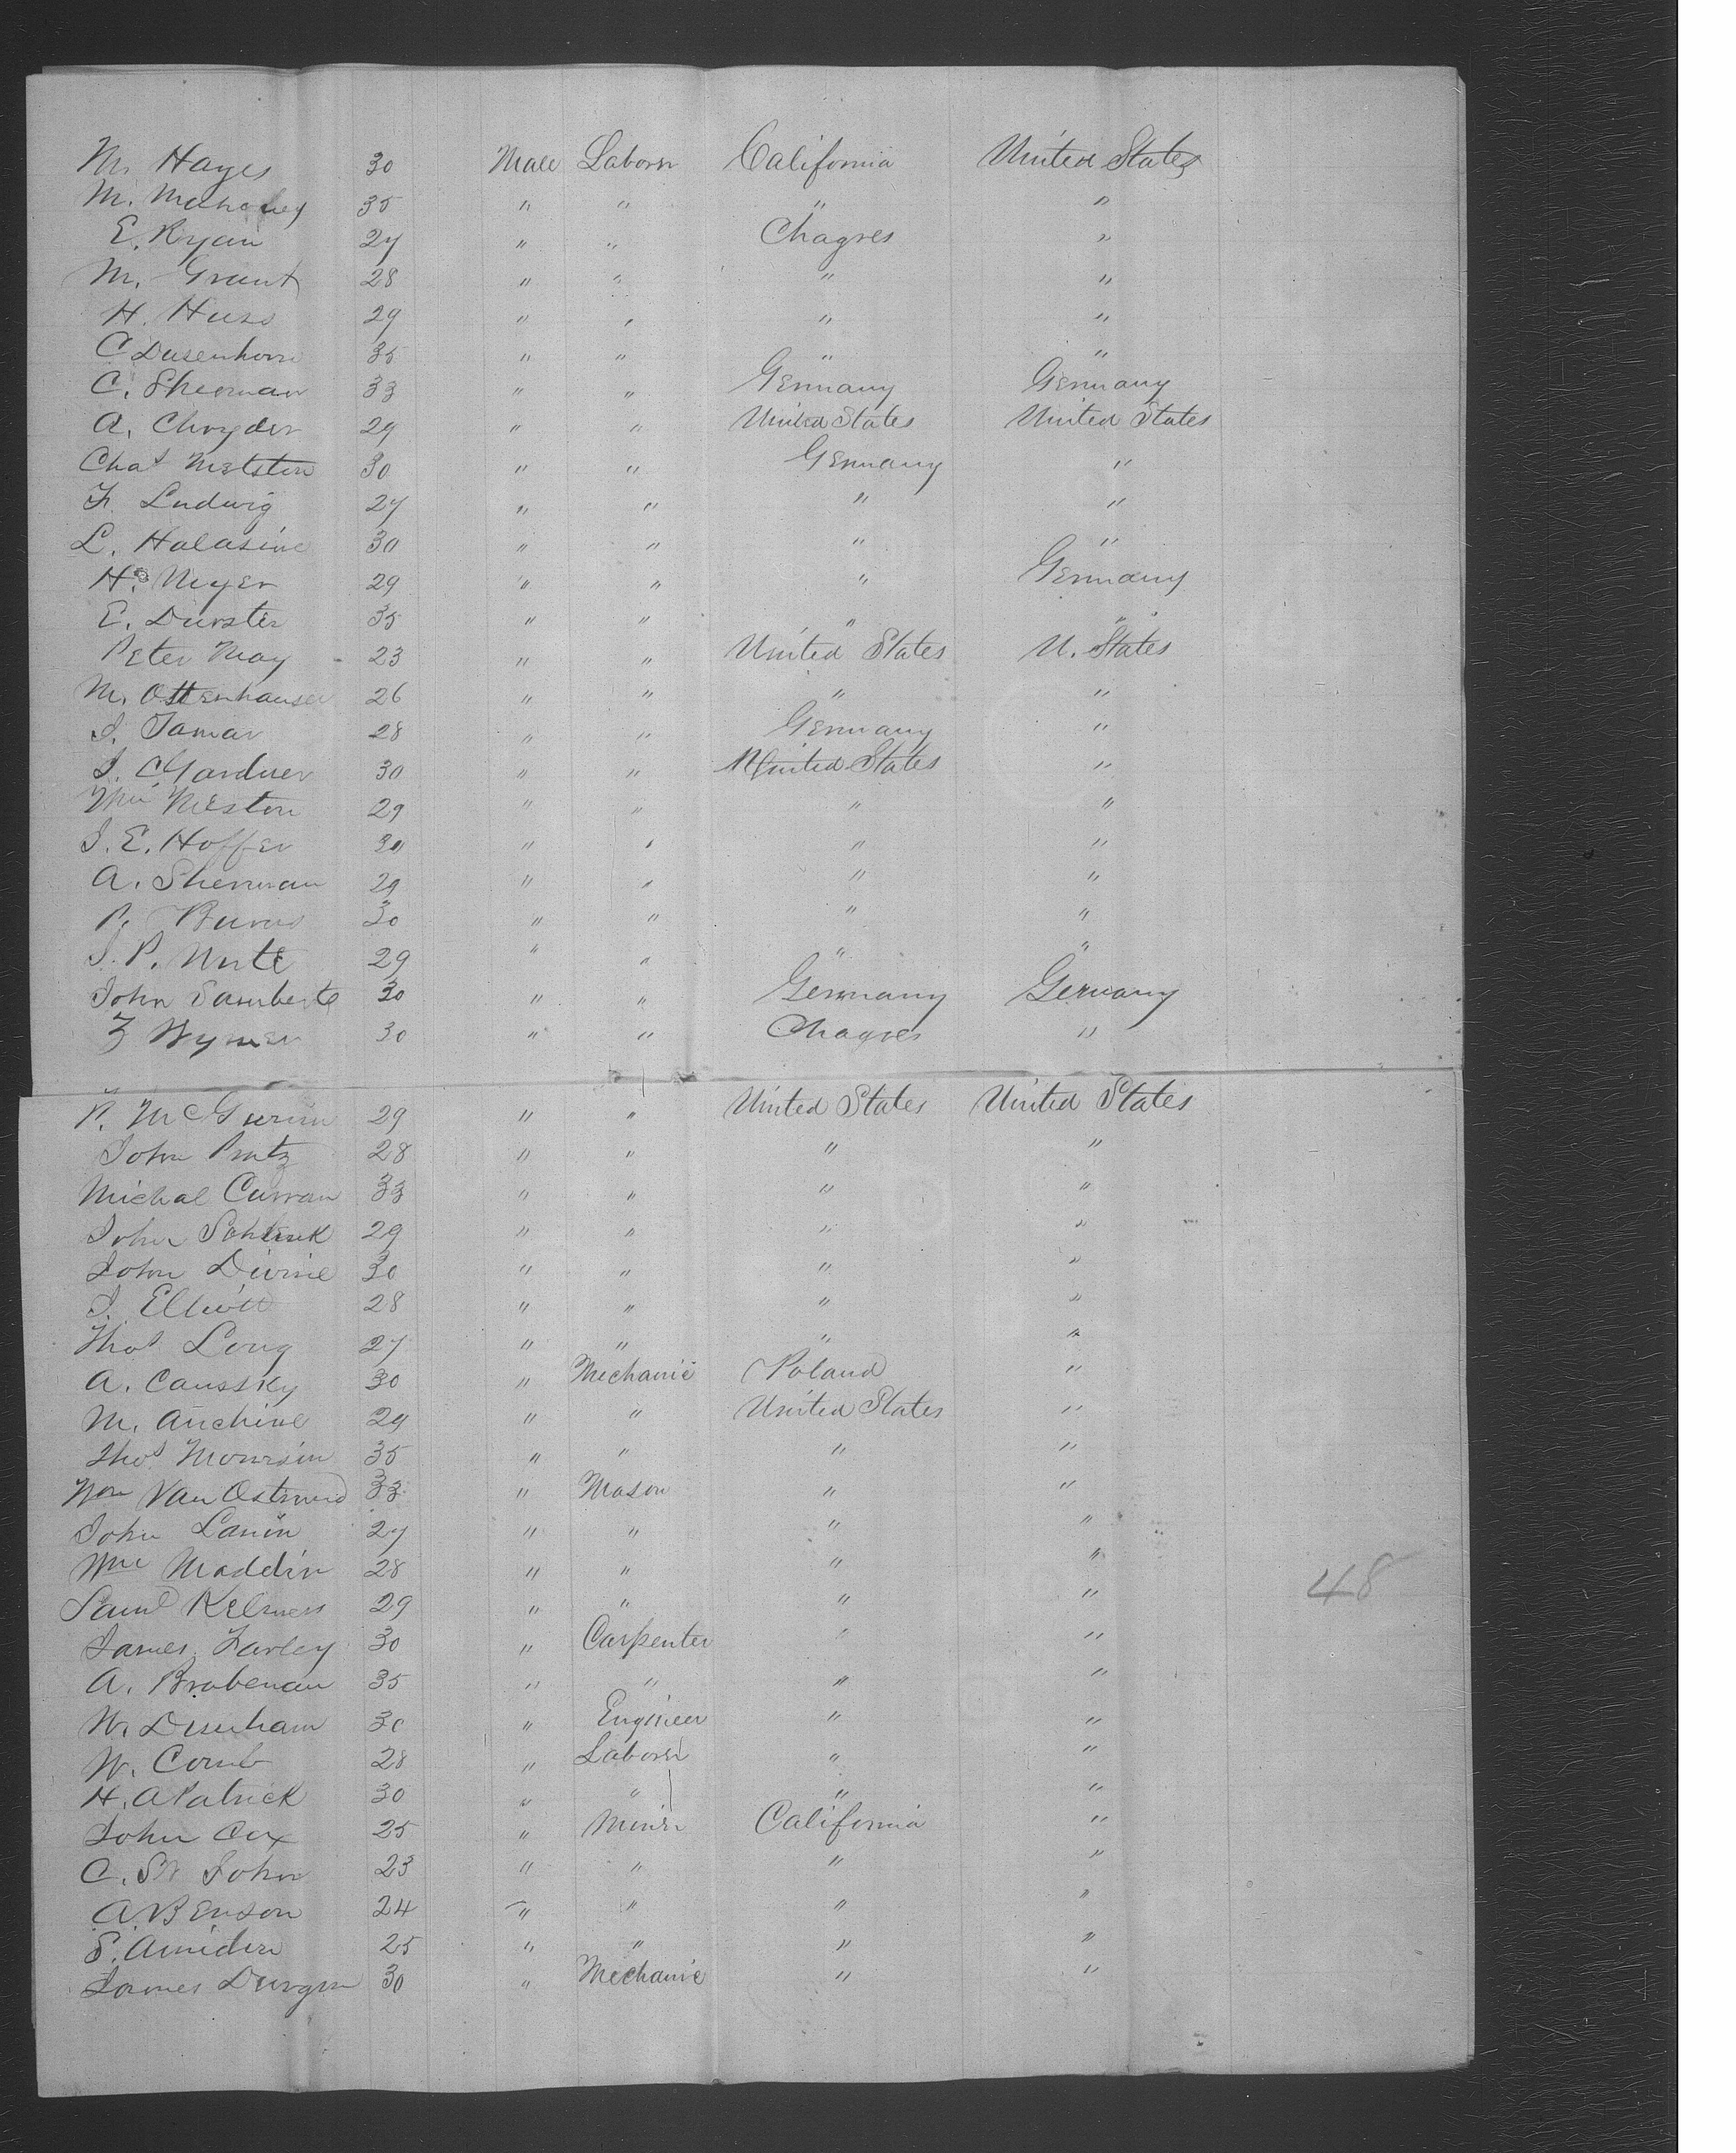 M. Hayes 30 Male Laborer California United States
M. Mahoney 35 " " " "
E. Ryan 27 " " Chagres "
M. Grant 28 " " " "
H. Huss 29 " " " "
C Dusenhorn 35 " " " "
C. Sherman 33 " " Germany Germany
A. Chryder 29 " " United States United States
Chas Metsten 30 " " Germany "
F. Ludwig 27 " " " "
L. Halasine 30 " " " "
H. Myer 29 " " " Germany
E. Durster 35 " " " "
Peter May 23 " " United States U. States
M. Ottenhauser 26 " " " "
J. Tamar 28 " " Germany "
J. Gardner 30 " " United States "
Wm Weston 29 " " " "
J. E. Hoffer 30 " " " "
A. Sherman 29 " " " "
P. Burns 30 " " " "
J. P. Nute 29 " " " "
John 30 " " Germany Germany
Z Wymer 30 " " Chagres "
P. 29 " " United States United States
John Prutz 28 " " " "
Michal Curran 33 " " " "
John Schlenk 29 " " " "
John Divine 30 " " " "
J. Elliott 28 " " " "
Thos Long 27 " " " "
A. Caussky 30 " Mechanic Poland "
M. Anchine 29 " " United States "
Thos 35 " " " "
Wm Van Ostrand 33 " Mason " "
John Lanin 27 " " " "
Wm Maddin 28 " " " "
Saml 29 " " " "
James Farley 30 " Carpenter " "
A. Brabenau 35 " " " "
W. Denham 30 " Engineer " "
W. Comb 28 " Laborer " "
H. A Patrick 30 " " " "
John Cox 25 " Miner California "
C. St John 23 " " " "
A. Benson 24 " " " "
S. Amiden 25 " " " "
James Durgin 30 " Mechanic " "
48